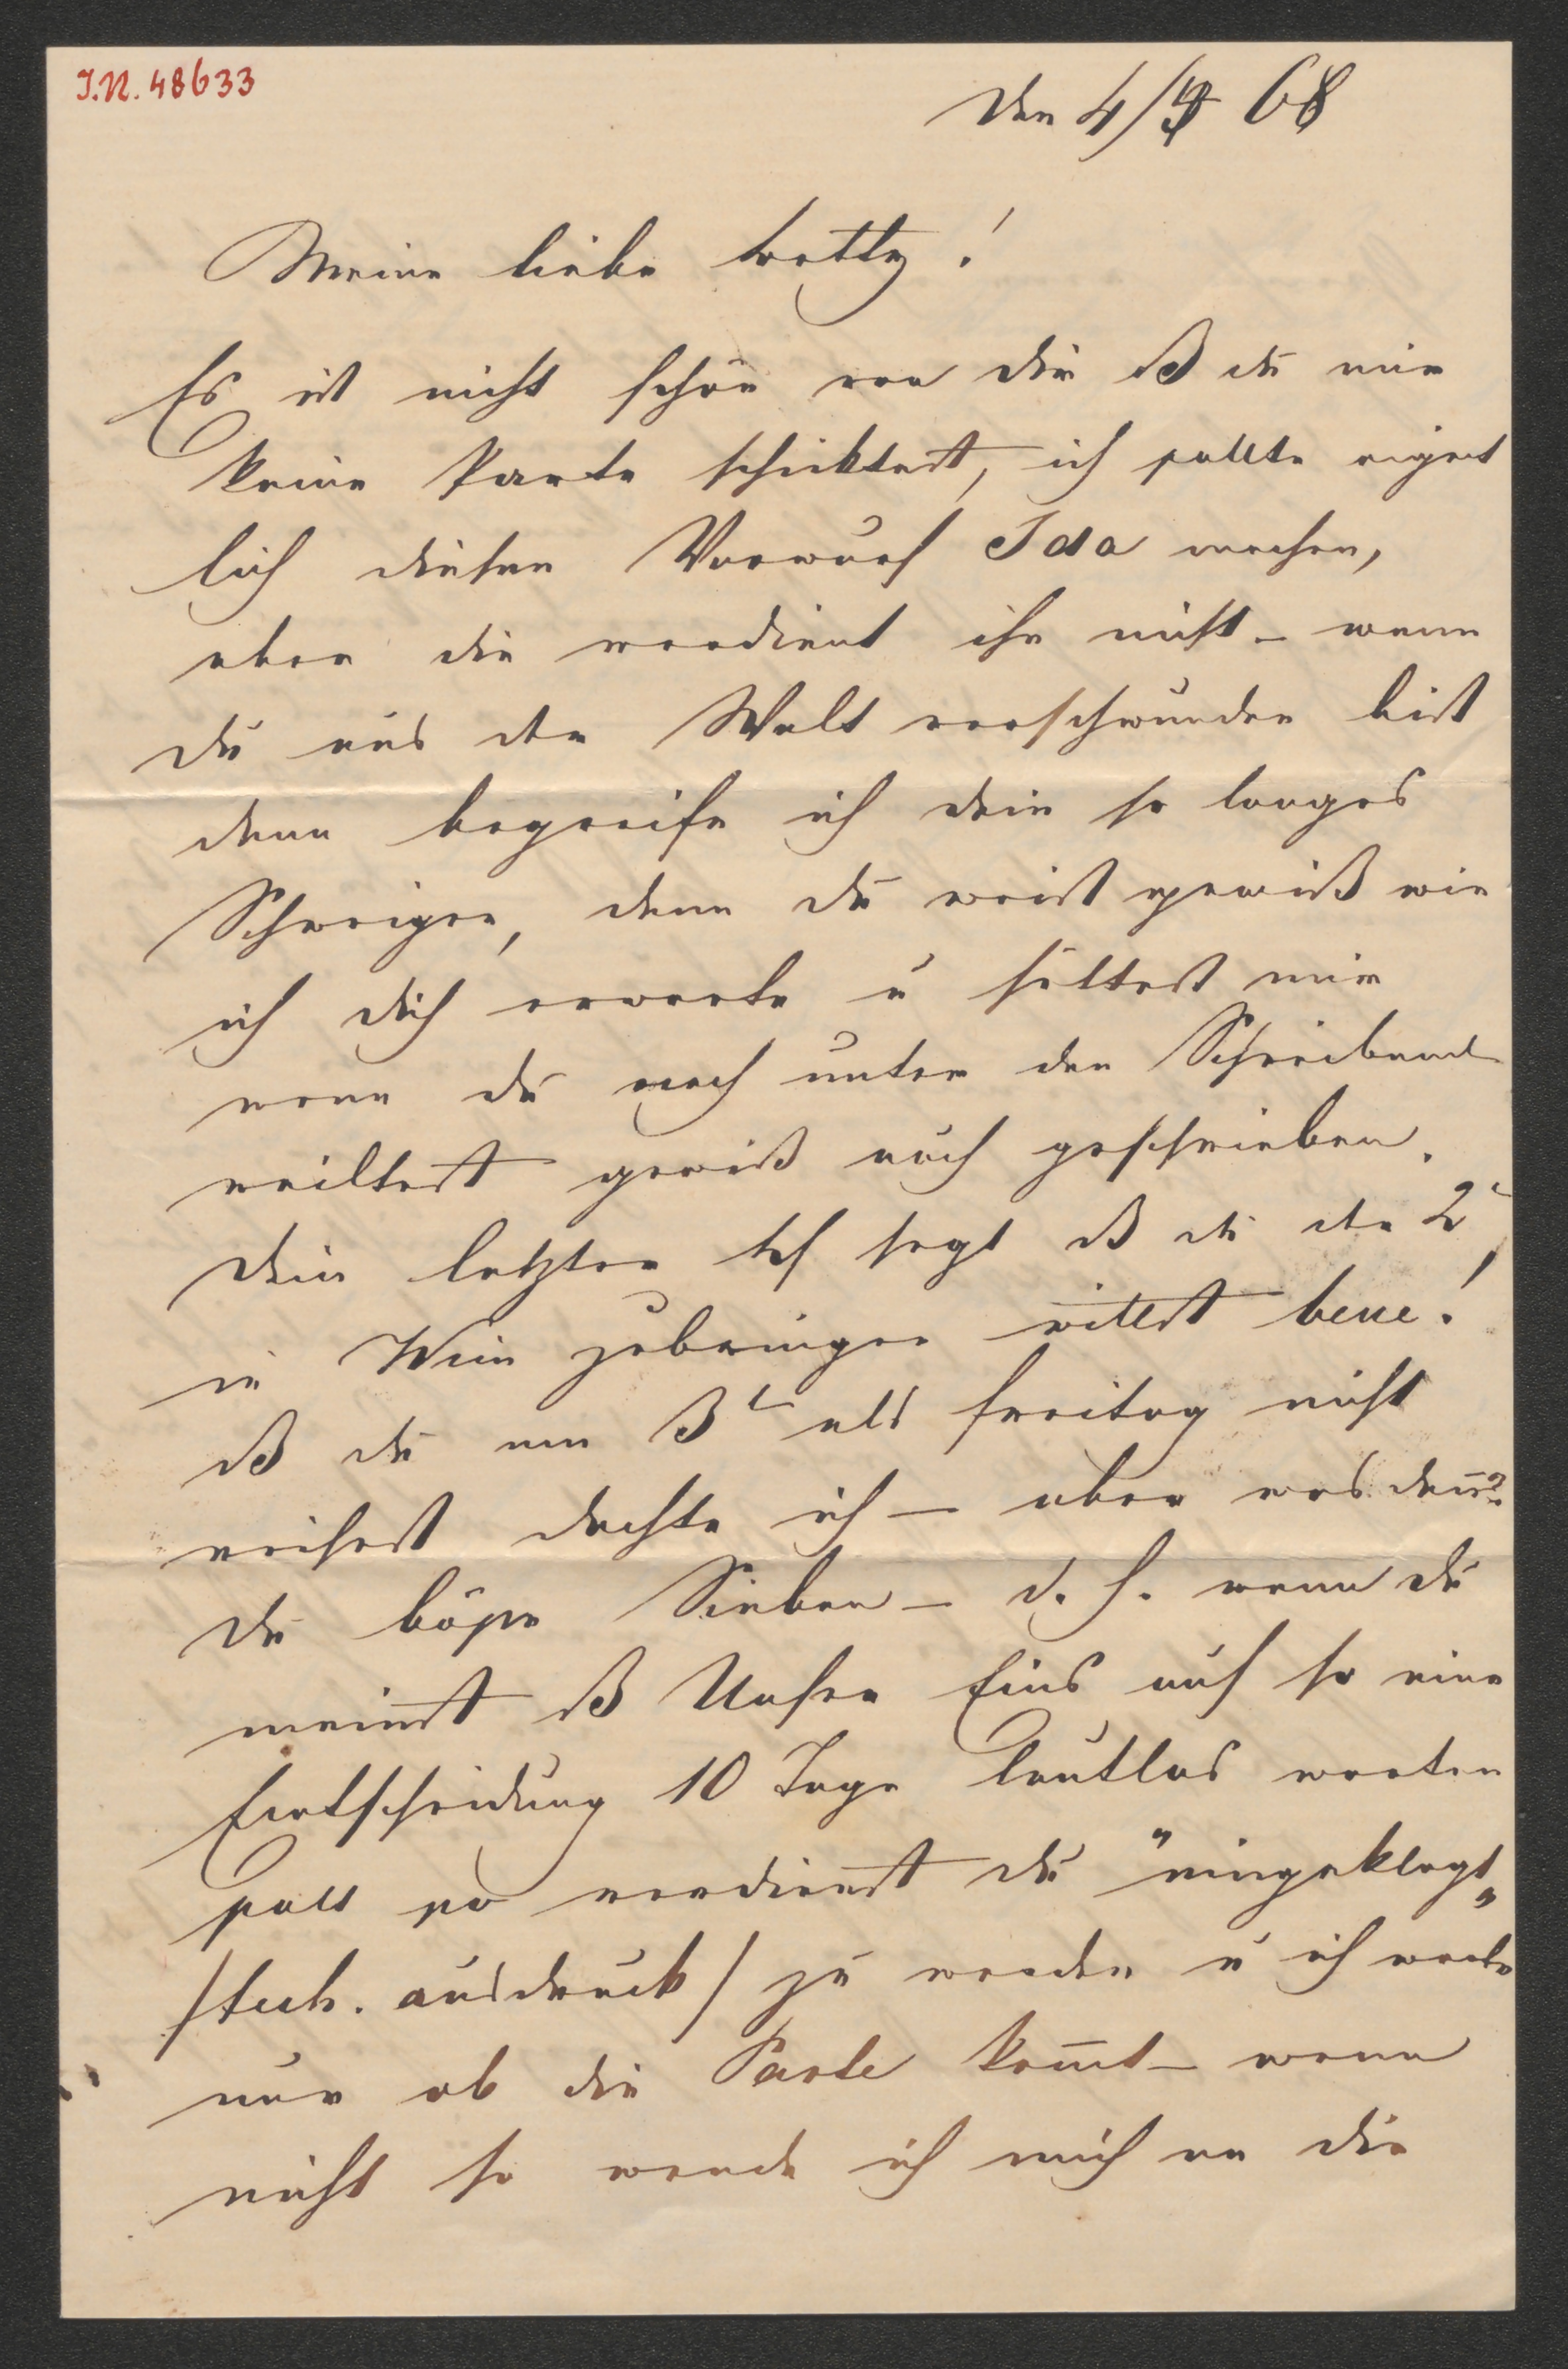 J.N. 48633
Den 4/9 68
Meine liebe Betty!
Es ist nicht schön von dir ß du mir
keine Parte schicktest, ich sollte eigent
lich diesen Vorwurf Ida machen,
aber die verdient ihn nicht – wenn
du aus der Welt verschwunden bist
dann begreife ich dein so langes
Schweigen, denn du weist gewiß wie
ich dich erwarte u hättest mir
wenn du noch unter den Schreibend
weiltest gewiß auch geschrieben.
Dein letzter sagt ß du den 2t
in Wien zubringen willst bene!
ß du am 3t als Freitag nicht
reisest dachte ich – aber was dann?
Du böse Sieben – d. h. wenn du
meinst ß Unser Eins auf so eine
Entscheidung 10 Tage lautlos warten
soll so verdienst du "eingeklagt"
/tech. ausdruck/ zu werden u ich warte
nur ob die Parte kom̄t – wenn
nicht so wende ich mich an die